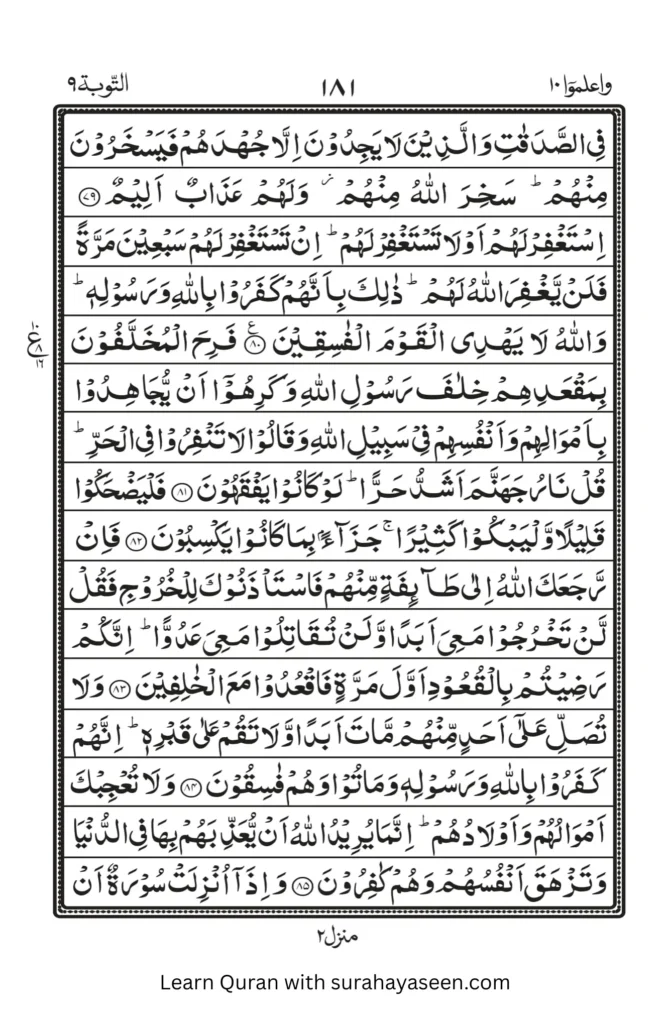 التّوبة ٩ ١٨١ واعلموٓا ١٠
فِی الصَّدَقٰتِ وَالَّذِیْنَ لَا یَجِدُوْنَ اِلَّا جُهْدَهُمْ فَیَسْخَرُوْنَ
مِنْهُمْ ؕ سَخِرَ اللّٰهُ مِنْهُمْ ؗ وَلَهُمْ عَذَابٌ اَلِیْمٌ ﴿۷۹﴾
اِسْتَغْفِرْ لَهُمْ اَوْ لَا تَسْتَغْفِرْ لَهُمْ ؕ اِنْ تَسْتَغْفِرْ لَهُمْ سَبْعِیْنَ مَرَّةً
فَلَنْ یَّغْفِرَ اللّٰهُ لَهُمْ ؕ ذٰلِكَ بِاَنَّهُمْ كَفَرُوْا بِاللّٰهِ وَرَسُوْلِهٖ ؕ
وَاللّٰهُ لَا یَهْدِی الْقَوْمَ الْفٰسِقِیْنَ ﴿۸۰﴾ۧ فَرِحَ الْمُخَلَّفُوْنَ
بِمَقْعَدِهِمْ خِلٰفَ رَسُوْلِ اللّٰهِ وَكَرِهُوْۤا اَنْ یُّجَاهِدُوْا
بِاَمْوَالِهِمْ وَاَنْفُسِهِمْ فِیْ سَبِیْلِ اللّٰهِ وَقَالُوْا لَا تَنْفِرُوْا فِی الْحَرِّ ؕ
قُلْ نَارُ جَهَنَّمَ اَشَدُّ حَرًّا ؕ لَوْ كَانُوْا یَفْقَهُوْنَ ﴿۸۱﴾ فَلْیَضْحَكُوْا
قَلِیْلًا وَّلْیَبْكُوْا كَثِیْرًا ۚ جَزَآءًۢ بِمَا كَانُوْا یَكْسِبُوْنَ ﴿۸۲﴾ فَاِنْ
رَّجَعَكَ اللّٰهُ اِلٰی طَآىِٕفَةٍ مِّنْهُمْ فَاسْتَاْذَنُوْكَ لِلْخُرُوْجِ فَقُلْ
لَّنْ تَخْرُجُوْا مَعِیَ اَبَدًا وَّلَنْ تُقَاتِلُوْا مَعِیَ عَدُوًّا ؕ اِنَّكُمْ
رَضِیْتُمْ بِالْقُعُوْدِ اَوَّلَ مَرَّةٍ فَاقْعُدُوْا مَعَ الْخٰلِفِیْنَ ﴿۸۳﴾ وَلَا
تُصَلِّ عَلٰۤی اَحَدٍ مِّنْهُمْ مَّاتَ اَبَدًا وَّلَا تَقُمْ عَلٰی قَبْرِهٖ ؕ اِنَّهُمْ
كَفَرُوْا بِاللّٰهِ وَرَسُوْلِهٖ وَمَاتُوْا وَهُمْ فٰسِقُوْنَ ﴿۸۴﴾ وَلَا تُعْجِبْكَ
اَمْوَالُهُمْ وَاَوْلَادُهُمْ ؕ اِنَّمَا یُرِیْدُ اللّٰهُ اَنْ یُّعَذِّبَهُمْ بِهَا فِی الدُّنْیَا
وَتَزْهَقَ اَنْفُسُهُمْ وَهُمْ كٰفِرُوْنَ ﴿۸۵﴾ وَاِذَاۤ اُنْزِلَتْ سُوْرَةٌ اَنْ
منزل ٢
Learn Quran with surahayaseen.com